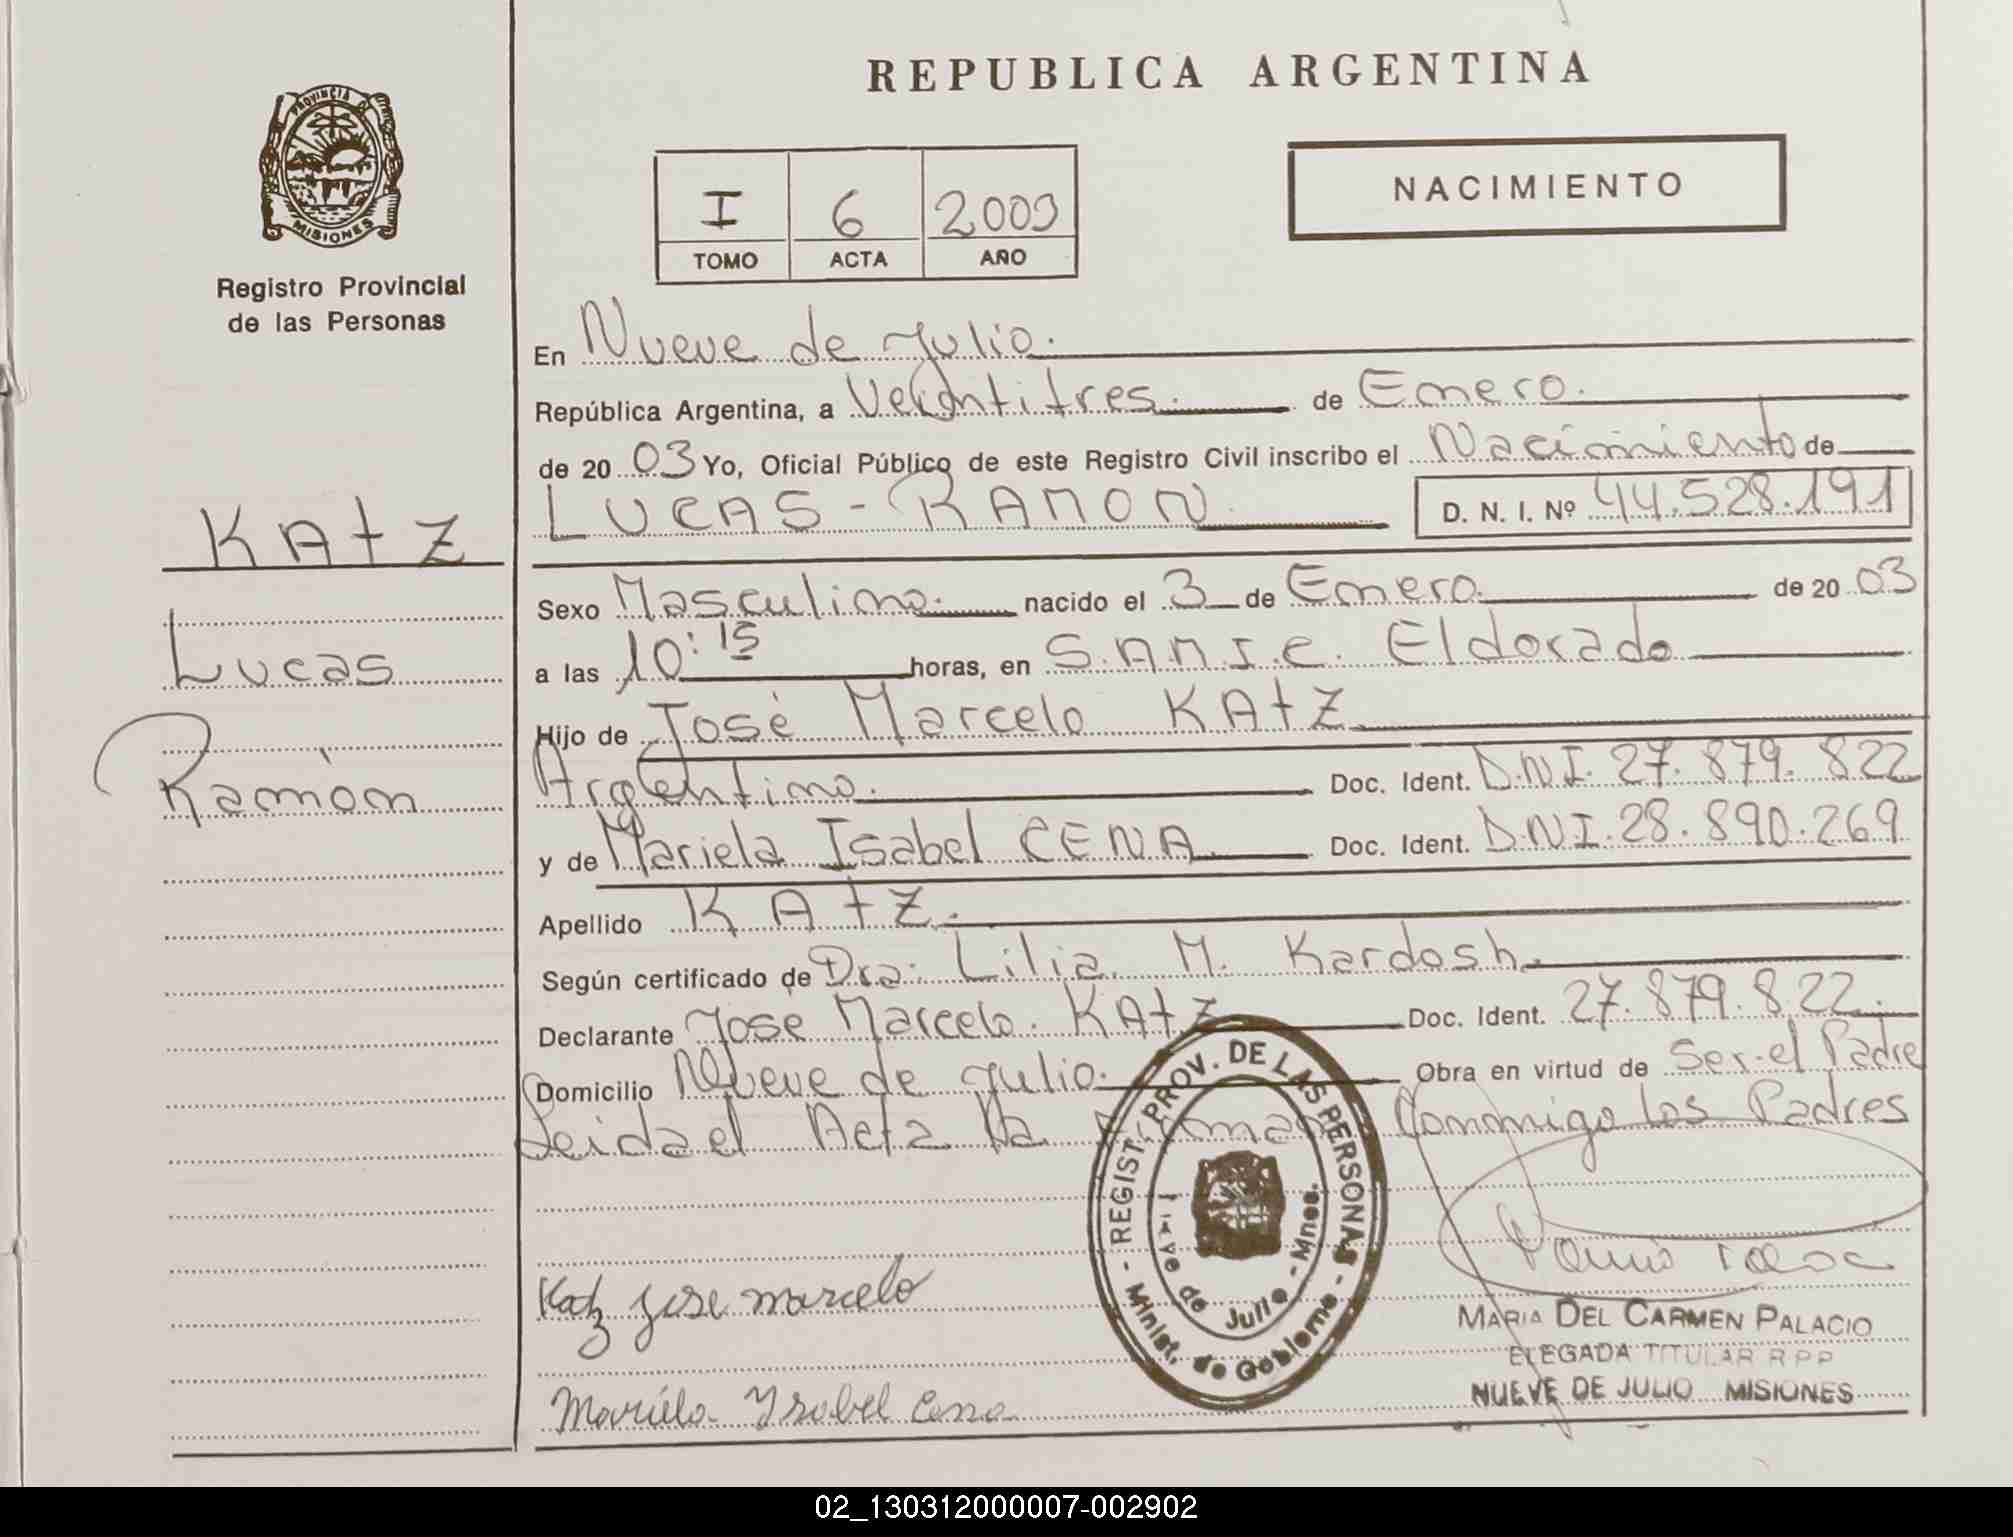 REPUBLICA ARGENTINA
PROVINCIA D
MISIONES
Registro Provincial
de las Personas
NACIMIENTO
I 6 2003
TOMO ACTA AÑO
En Nueve de Julio.
República Argentina, a Veintitres. de Enero.
de 20 03 Yo, Oficial Público de este Registro Civil inscribo el Nacimiento de
LUCAS - RAMON D. N. I. Nº 44.528.191
KATZ
Lucas
Ramón
Sexo Masculino. nacido el 3 de Enero de 20 03
a las 10:15 horas, en S.A.M.I.C. Eldorado
Hijo de José Marcelo KATZ
Argentino. Doc. Ident. D.N.I. 27.879.822
y de Mariela Isabel CENA Doc. Ident. D.N.I. 28.890.269
Apellido KATZ.
Según certificado de Dra. Lilia M. Kardosh.
Declarante Jose Marcelo KATZ Doc. Ident. 27.879.822.
Domicilio Nueve de Julio. Obra en virtud de Ser el Padre
Leida el Acta la Firman Conmigo los Padres
REGIST. PROV. DE LAS PERSONAS
- Minist. de Gobierno -
de Julio - Mnes.
Katz Jose marcelo
Mariela Ysabel Cena
MARIA DEL CARMEN PALACIO
ELEGADA TITULAR R P P
NUEVE DE JULIO MISIONES
02_130312000007-002902